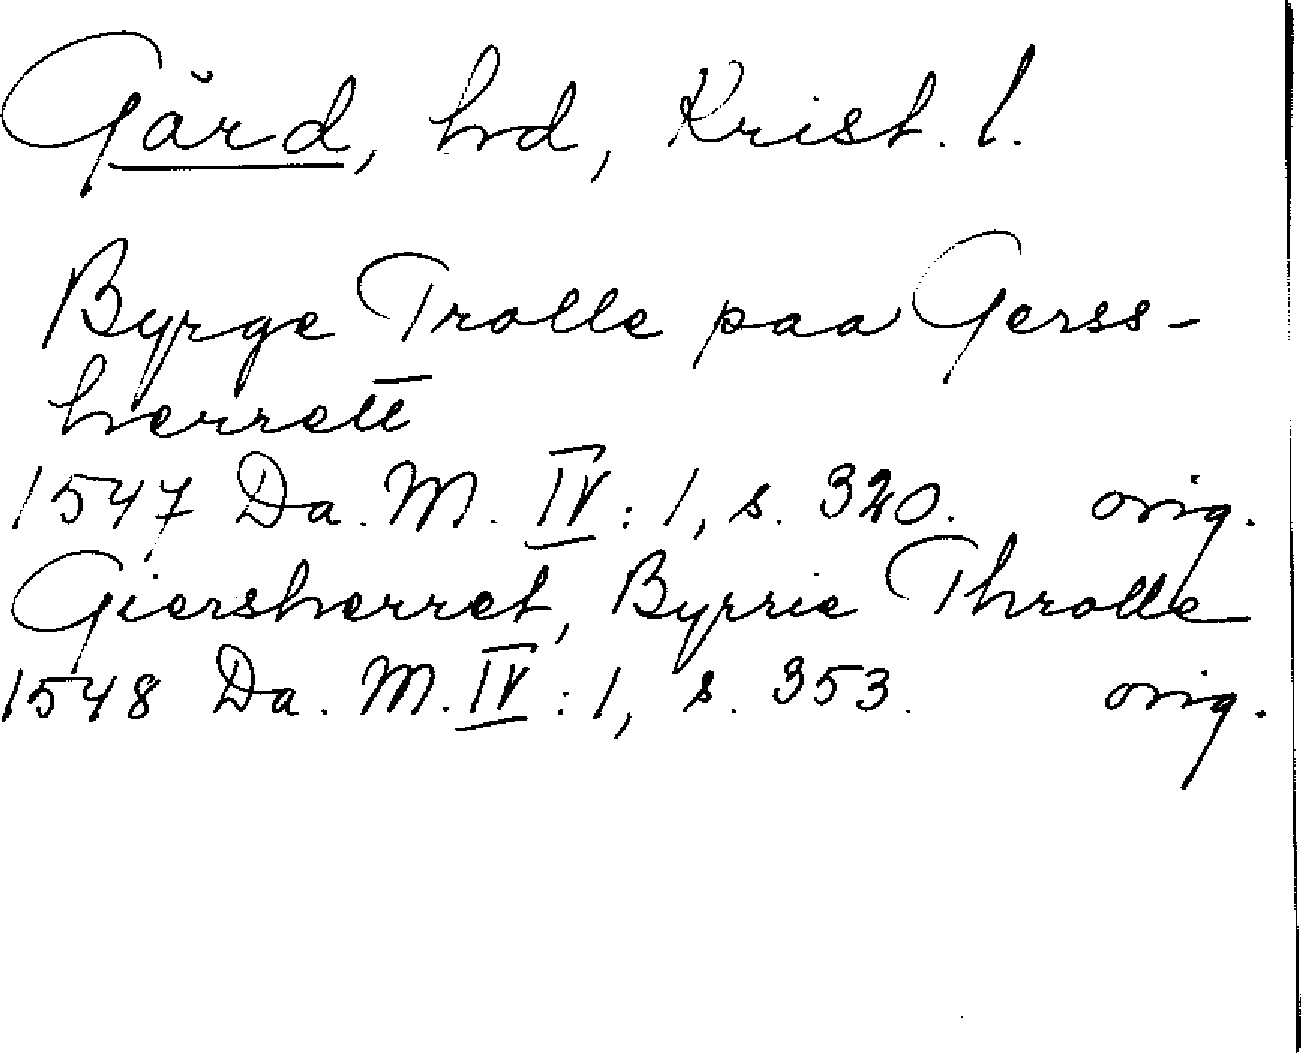 Gärd, hd, Krist. l.
Byrge Trolle paa Gerss-
herrett
1547 Da. M. IV : 1, s. 320. orig.
Giersherret, Byrrie Throlle
1548 Da. M. IV : 1, s. 353. orig.